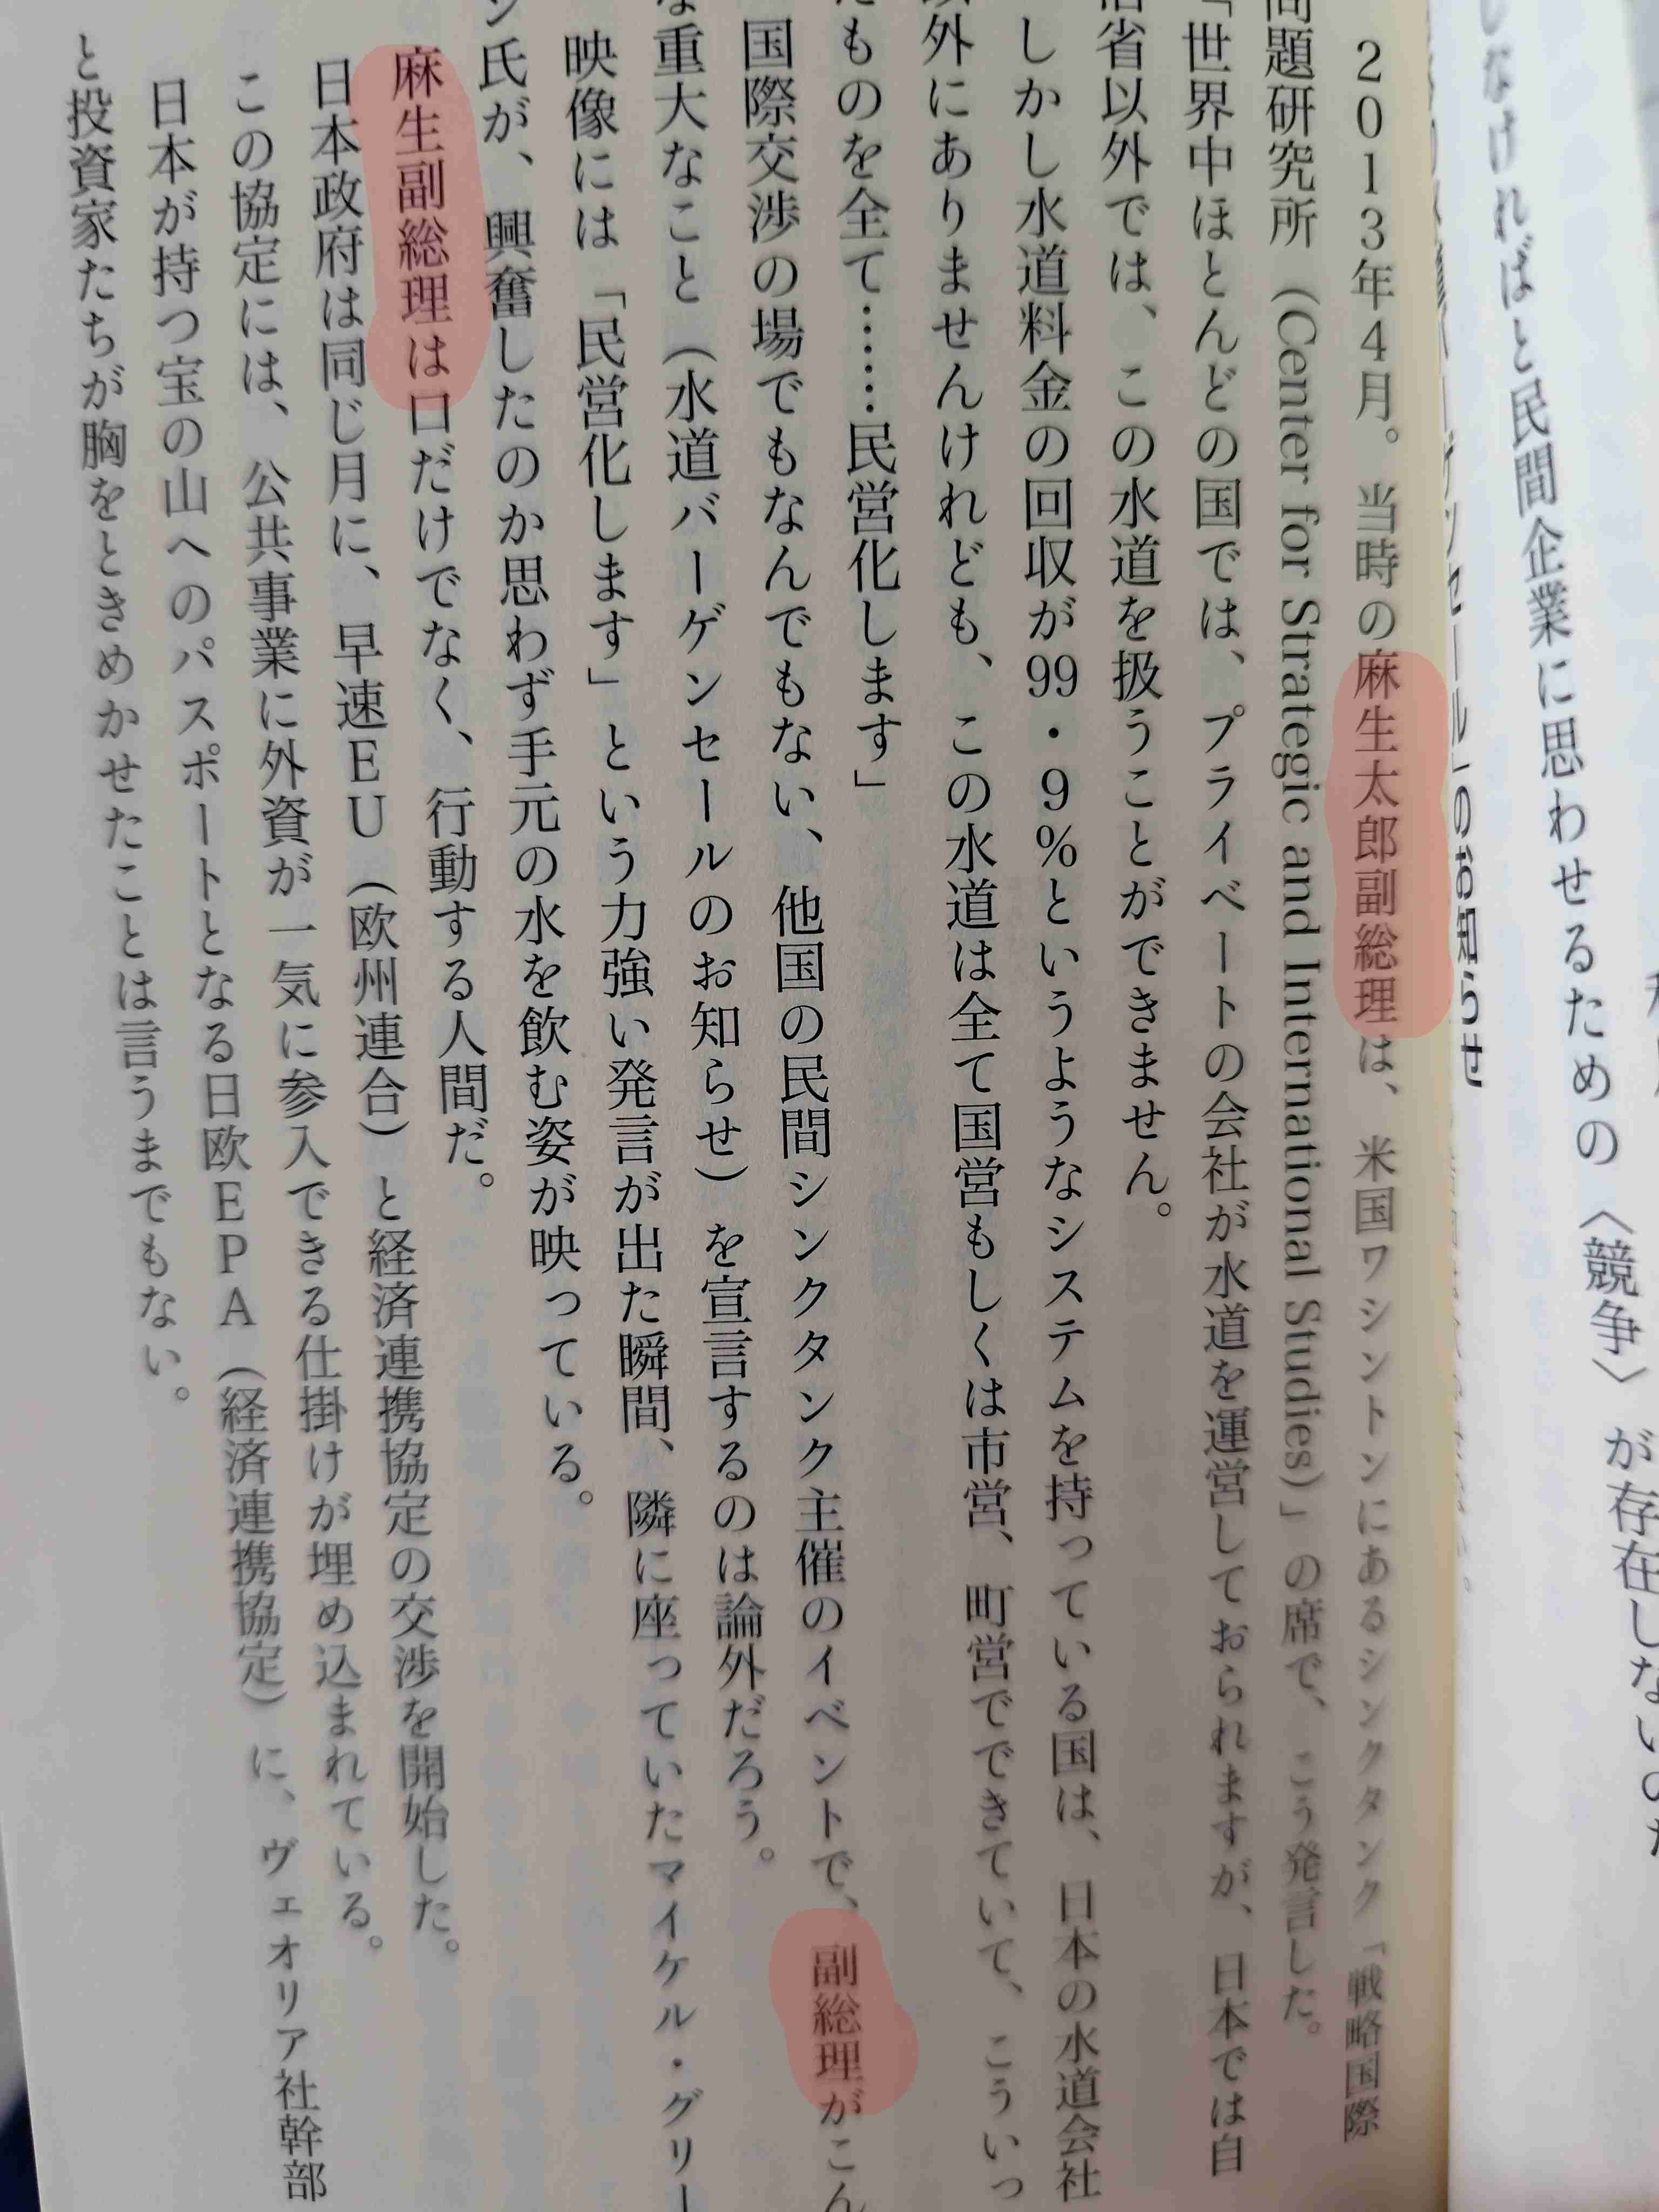 しなければと民間企業に思わせるための〈競争〉が存在しないのだ
2013年4月。当時の麻生太郎副総理は、米国ワシントンにあるシンクタンク「戦略国際
問題研究所(Center for Strategic and International Studies)」の席で、こう発言した。
「世界中ほとんどの国では、プライベートの会社が水道を運営しておられますが、日本では自
治省以外では、この水道を扱うことができません。
しかし水道料金の回収が99・9%というようなシステムを持っている国は、日本の水道会社
以外にありませんけれども、この水道は全て国営もしくは市営、町営でできていて、こういっ
たものを全て……民営化します」
国際交渉の場でもなんでもない、他国の民間シンクタンク主催のイベントで、副総理がこん
な重大なこと(水道バーゲンセールのお知らせ)を宣言するのは論外だろう。
映像には「民営化します」という力強い発言が出た瞬間、隣に座っていたマイケル・グリー
ン氏が、興奮したのか思わず手元の水を飲む姿が映っている。
麻生副総理は口だけでなく、行動する人間だ。
日本政府は同じ月に、早速EU(欧州連合)と経済連携協定の交渉を開始した。
この協定には、公共事業に外資が一気に参入できる仕掛けが埋め込まれている。
日本が持つ宝の山へのパスポートとなる日欧EPA(経済連携協定)に、ヴェオリア社幹部
と投資家たちが胸をときめかせたことは言うまでもない。